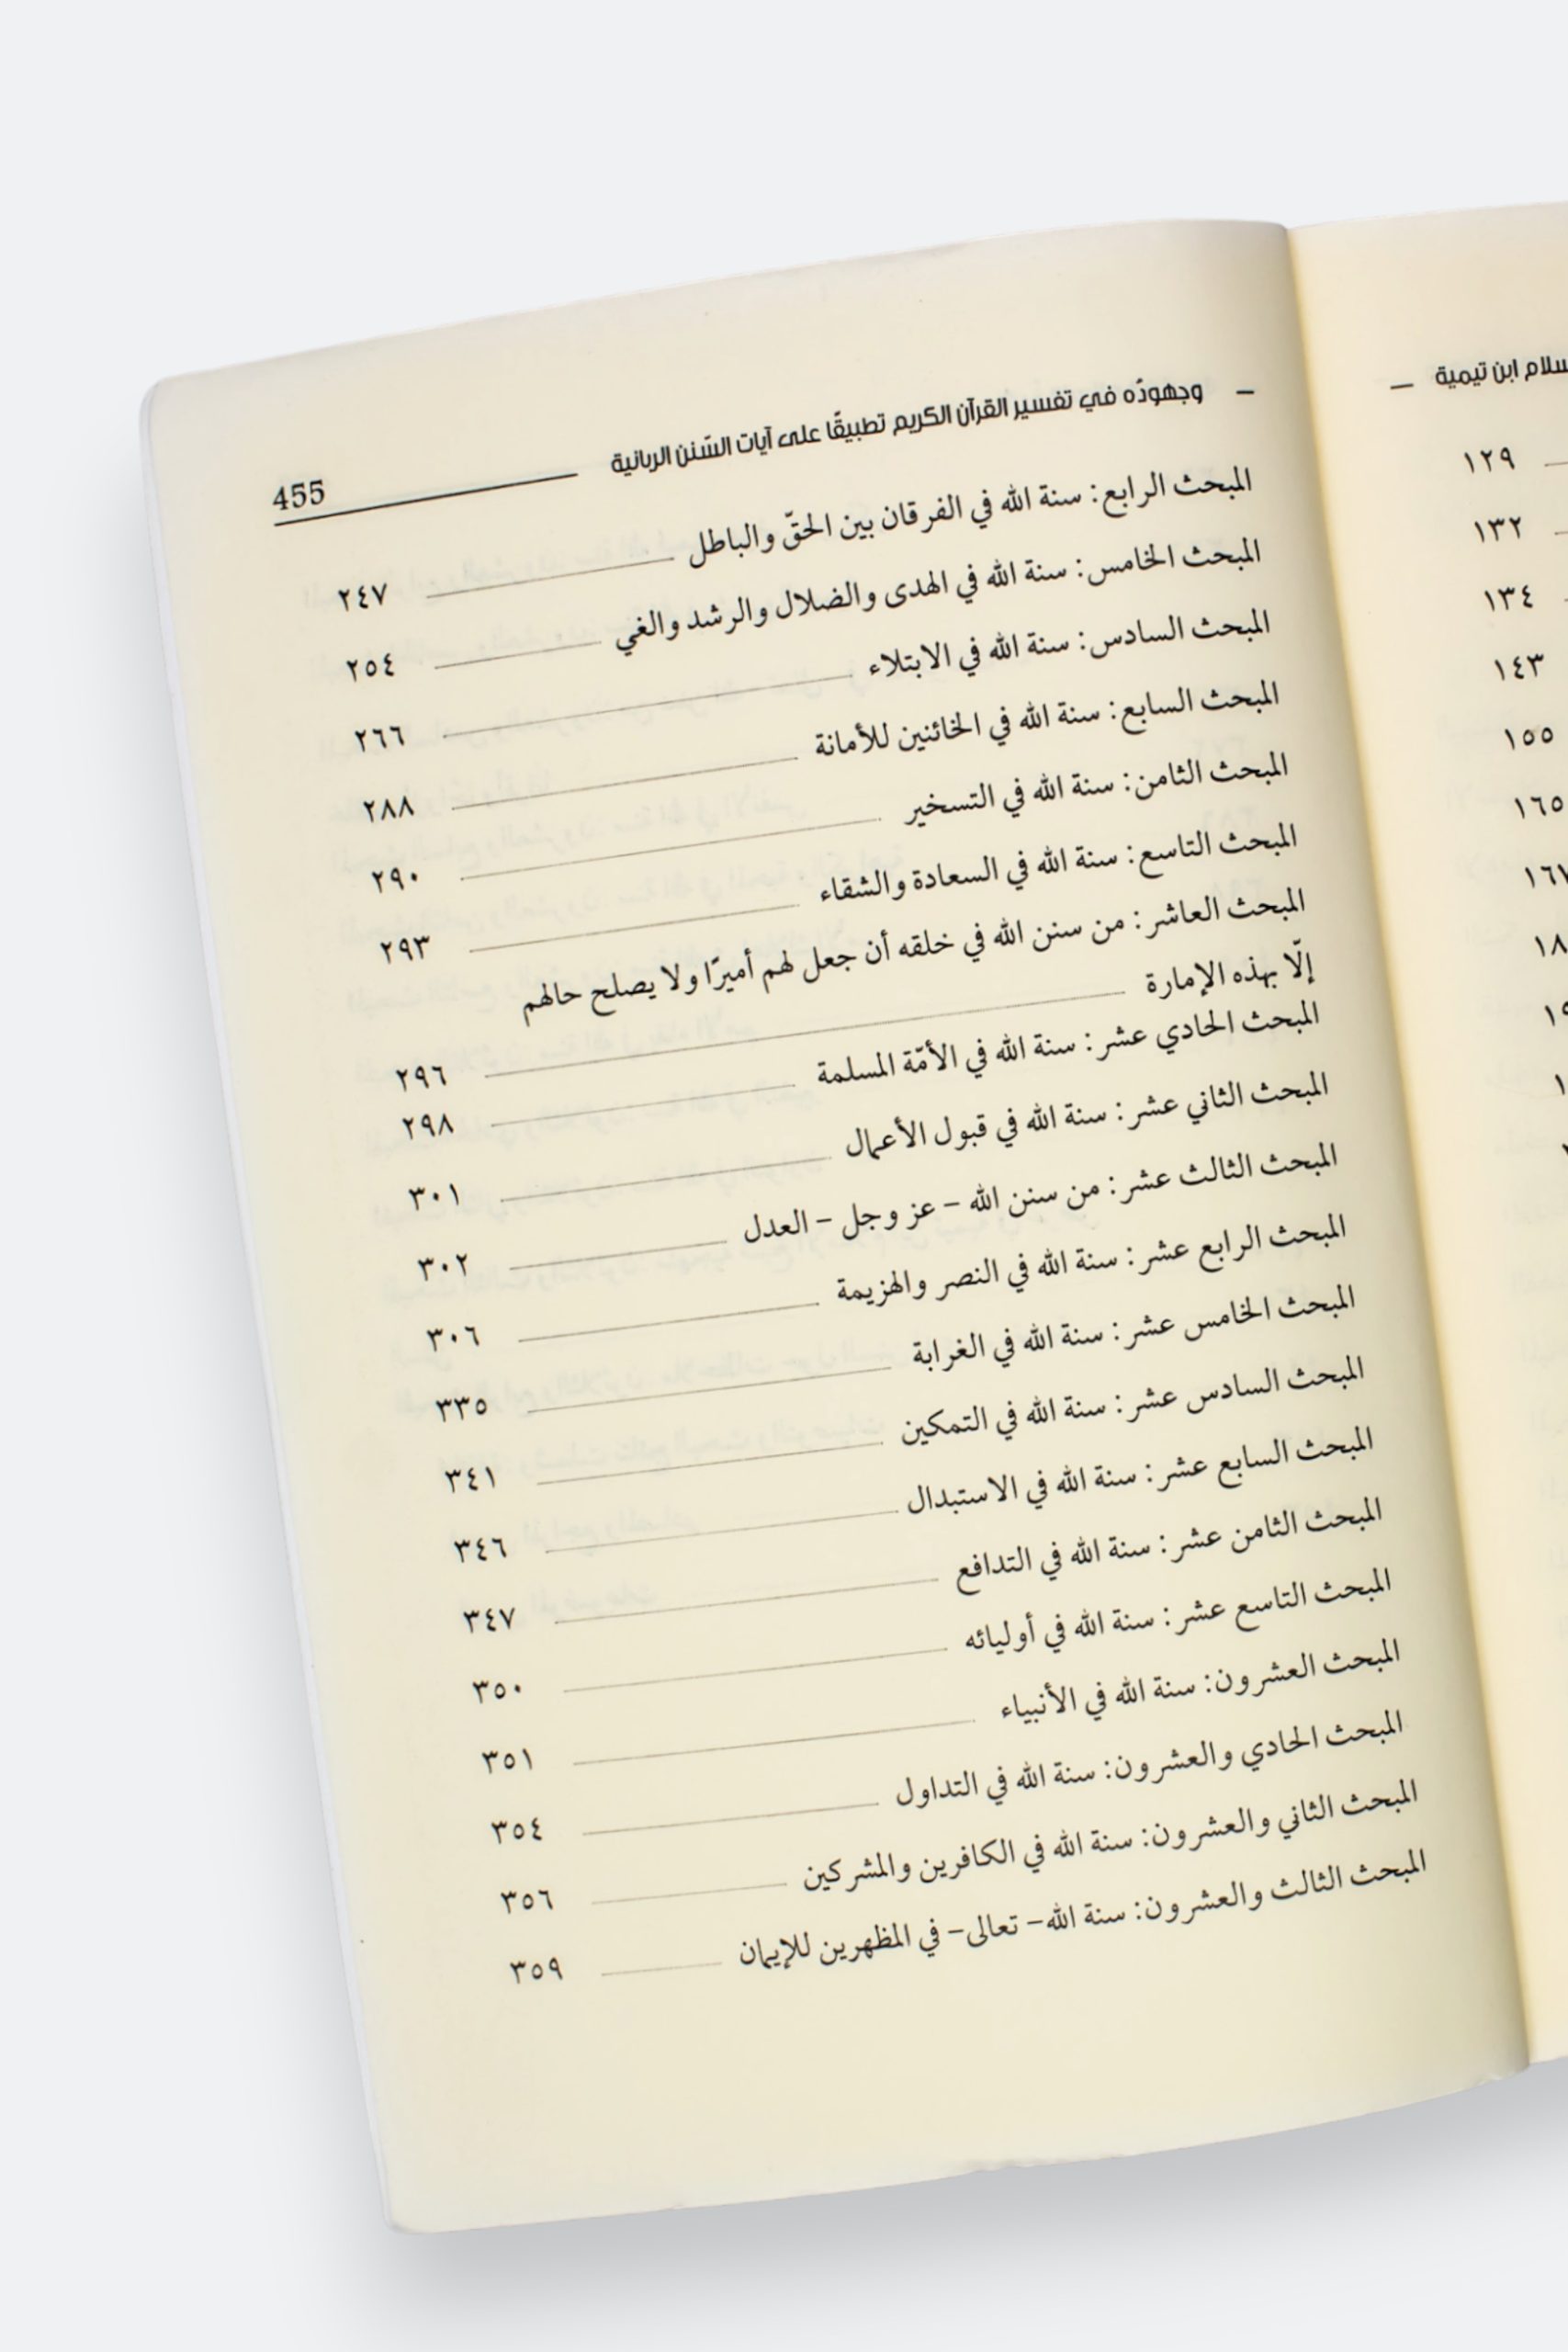 سلام ابن تيمية —
١٢٩
١٣٢
١٣٤
١٤٣
١٥٥
١٦٥
— وجهودُه في تفسير القرآن الكريم تطبيقًا على آيات السّنن الربانية 455
المبحث الرابع: سنة الله في الفرقان بين الحقّ والباطل ٢٤٧
المبحث الخامس: سنة الله في الهدى والضلال والرشد والغي ٢٥٤
المبحث السادس: سنة الله في الابتلاء ٢٦٦
المبحث السابع: سنة الله في الخائنين للأمانة ٢٨٨
المبحث الثامن: سنة الله في التسخير ٢٩٠
المبحث التاسع: سنة الله في السعادة والشقاء ٢٩٣
المبحث العاشر: من سنن الله في خلقه أن جعل لهم أميرًا ولا يصلح حالهم
إلّا بهذه الإمارة ٢٩٦
المبحث الحادي عشر: سنة الله في الأمّة المسلمة ٢٩٨
المبحث الثاني عشر: سنة الله في قبول الأعمال ٣٠١
المبحث الثالث عشر: من سنن الله – عز وجل – العدل ٣٠٢
المبحث الرابع عشر: سنة الله في النصر والهزيمة ٣٠٦
المبحث الخامس عشر: سنة الله في الغرابة ٣٣٥
المبحث السادس عشر: سنة الله في التمكين ٣٤١
المبحث السابع عشر: سنة الله في الاستبدال ٣٤٦
المبحث الثامن عشر: سنة الله في التدافع ٣٤٧
المبحث التاسع عشر: سنة الله في أوليائه ٣٥٠
المبحث العشرون: سنة الله في الأنبياء ٣٥١
المبحث الحادي والعشرون: سنة الله في التداول ٣٥٤
المبحث الثاني والعشرون: سنة الله في الكافرين والمشركين ٣٥٦
المبحث الثالث والعشرون: سنة الله– تعالى– في المظهرين للإيمان ٣٥٩